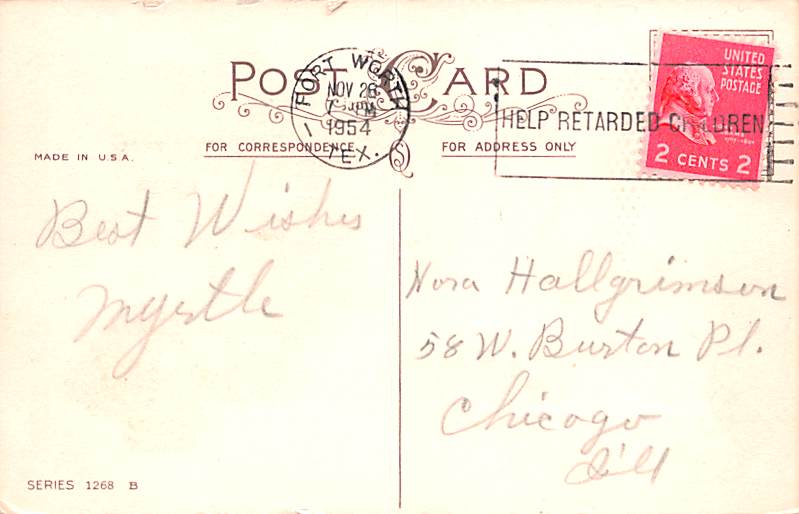 POST CARD
FORT WORTH
NOV 26
1954
TEX.
1
HELP RETARDED CHILDREN
UNITED
STATES
POSTAGE
2 CENTS 2
FOR CORRESPONDENCE
FOR ADDRESS ONLY
MADE IN U.S.A.
Best Wishes
Myrtle
Nora Hallgrimson
58 W. Burton Pl.
Chicago
Ill
SERIES 1268 B